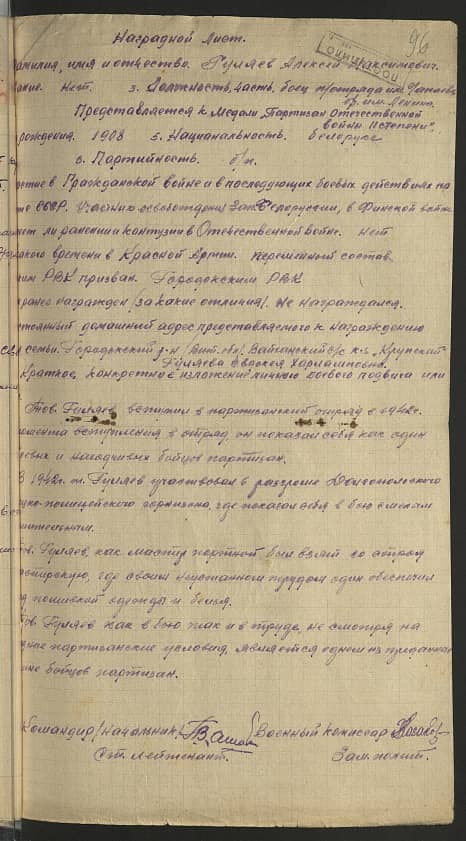 Наградной лист.
96
амилия, имя и отчество. Гуляев Алексей Максимович.
ание. Нет. 3. Должность, часть. боец п/отряда им. Чапаева
бр. им. Ленин.
Представляется к Медали "Партизан Отечественной
войны II степени"
рождения. 1908 5. Национальность. белорусс
6. Партийность. б/п.
стие в Гражданской войне и в последующих боевых действиях по
те СССР. Участник освобождения Зап.Белоруссии, в Финской войне
меет ли ранения и контузии в Отечественной войне. Нет
какого времени в Красной Армии. переменный состав
ким РВК призван. Городокским РВК
ранее награжден /за какие отличия/. Не награждался.
стоянный домашний адрес представляемого к награждению
семьи. Городокский р-н /Вит. обл/ Вайханский с/с к-з "Крупской"
Гуляева Евдокия Харламповна.
краткое, конкретное изложение личного боевого подвига или
Тов. Гуляев вступил в партизанский отряд в 1942г.
момента вступления в отряд он показал себя как один
евых и находчивых бойцов партизан.
В 1942г. т. Гуляев участвовал в разгроме
цко-полицейского гарнизона, где показал себя в бою смелым
шительным.
ов. Гуляев, как мастер портной был взят со отряда
стерскую, где своим неустанным трудом один обеспечил
д пошивкой одежды и белья.
ов. Гуляев как в бою так и в труде, не смотря на
дные партизанские условия, является одним из преданных
ине бойцов партизан.
Командир /начальник/ Военный комиссар
Ст. лейтенант. Зам. полит.